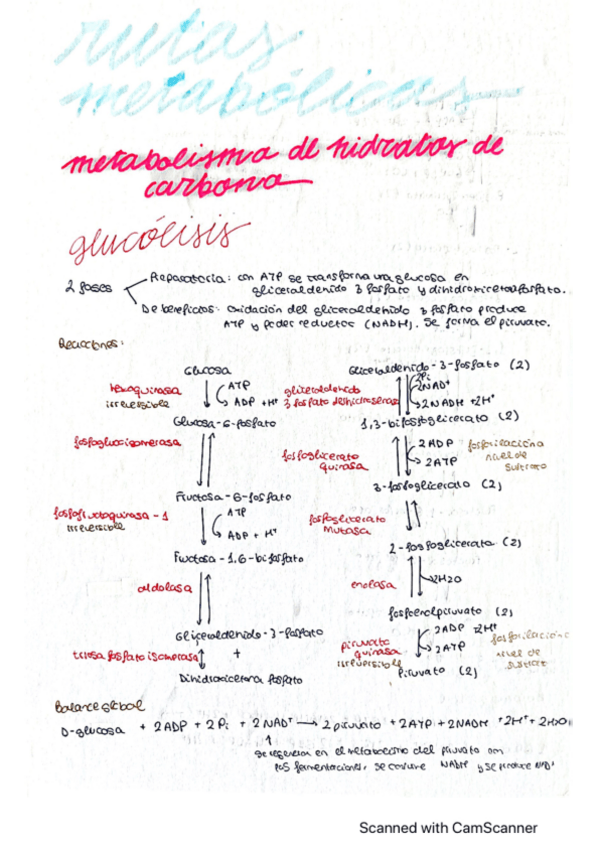 rutas
metabólicas
metabolismo de hidratos de
carbono
glucólisis
2 fases
Preparatoria: con ATP se transforma una glucosa en
gliceraldehido 3 fosfato y dihidroxicetonafosfato.
De beneficios: oxidación del gliceraldehido 3 fosfato produce
ATP y poder reductor (NADH). Se forma el piruvato.
Reacciones:
Glucosa
hexoquinasa
irreversible
ATP
ADP + H+
Glucosa-6-fosfato
fosfoglucoisomerasa
Fructosa-6-fosfato
fosfofructoquinasa-1
irreversible
ATP
ADP + H+
Fructosa-1,6-bifosfato
aldolasa
Gliceraldehido-3-fosfato
triosa fosfato isomerasa
+
Dihidroxicetona fosfato
Gliceraldehido-3-fosfato (2)
gliceraldehido
3 fosfato deshidrogenasa
2Pi
2NAD+
2NADH +2H+
1,3-bifosfoglicerato (2)
fosfoglicerato
quinasa
2ADP
2ATP
fosforilación a
nivel de
sustrato
3-fosfoglicerato (2)
fosfoglicerato
mutasa
2-fosfoglicerato (2)
enolasa
2H2O
fosfoenolpiruvato (2)
piruvato
quinasa
irreversible
2ADP +2H+
2ATP
fosforilación
nivel de
sustrat
Piruvato (2)
Balance global
D-glucosa + 2ADP + 2Pi + 2NAD+ → 2piruvato + 2ATP + 2NADH + 2H+ + 2H2O
se regenera en el metabolismo del piruvato con
las fermentaciones, se consume NADH y se produce NAD+
Scanned with CamScanner